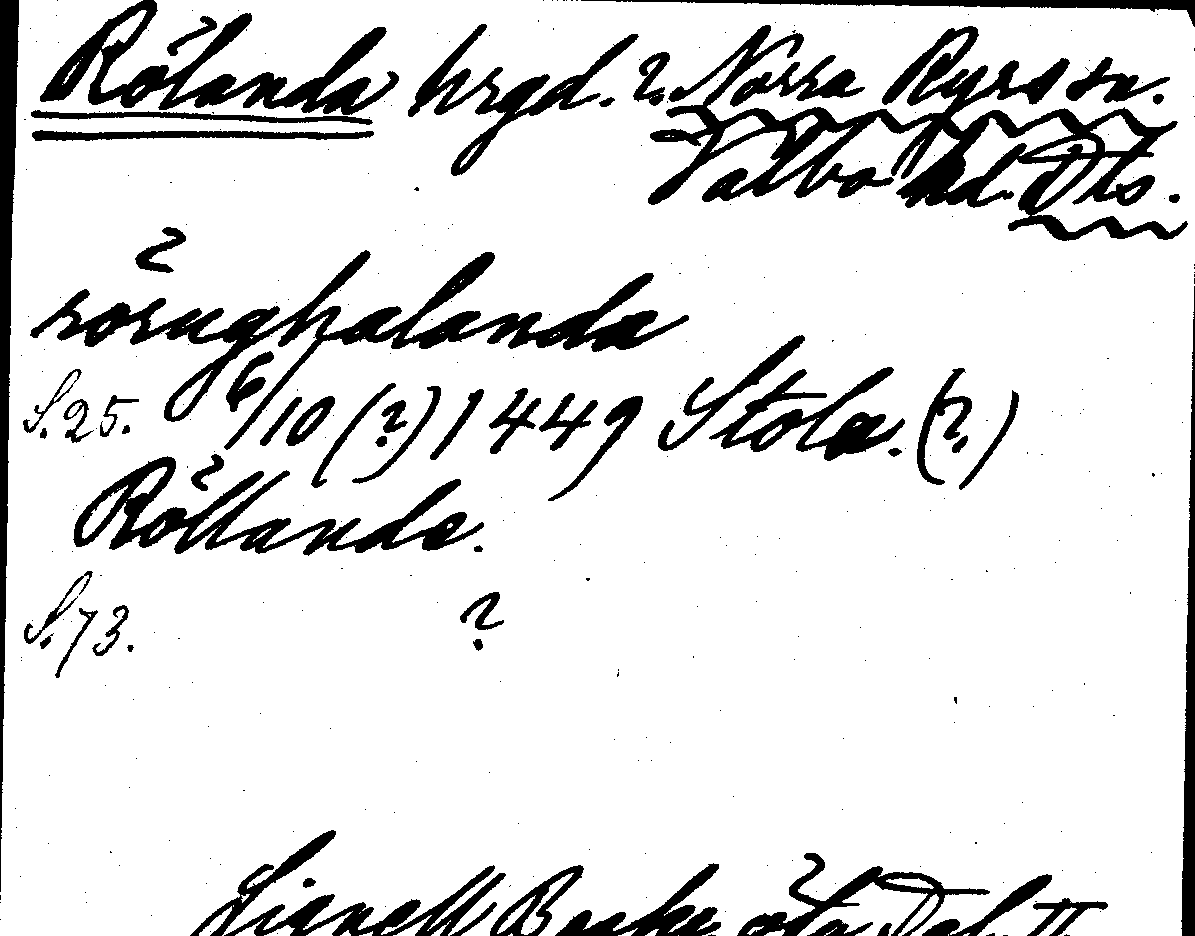 Rölanda hrgd. ? Norra Ryrs sn.
Valbo hd. Dls.
rörughalanda
S.25. 6/10 (?) 1449 Stola. (?)
Röllanda.
S.73. ?
Lignell Beskr. öfv. Dal. II